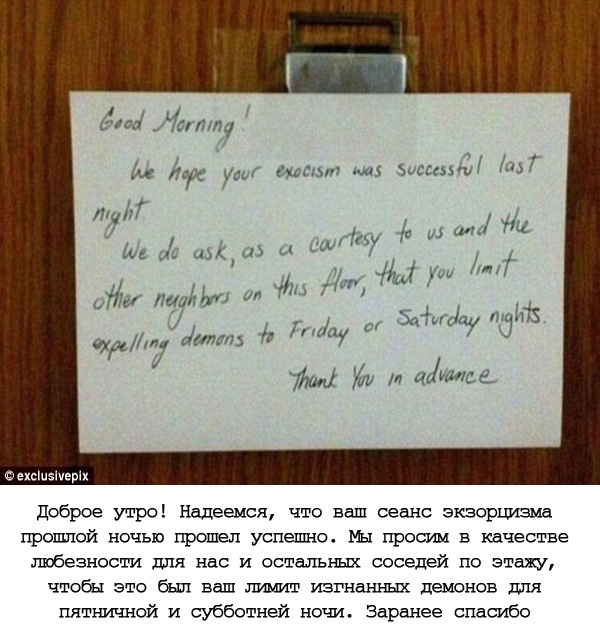 Good Morning!
We hope your exocism was successful last
night.
We do ask, as a courtesy to us and the
other neighbors on this floor, that you limit
expelling demons to Friday or Saturday nights.
Thank You in advance
© exclusivepix
Доброе утро! Надеемся, что ваш сеанс экзорцизма
прошлой ночью прошел успешно. Мы просим в качестве
любезности для нас и остальных соседей по этажу,
чтобы это был ваш лимит изгнанных демонов для
пятничной и субботней ночи. Заранее спасибо